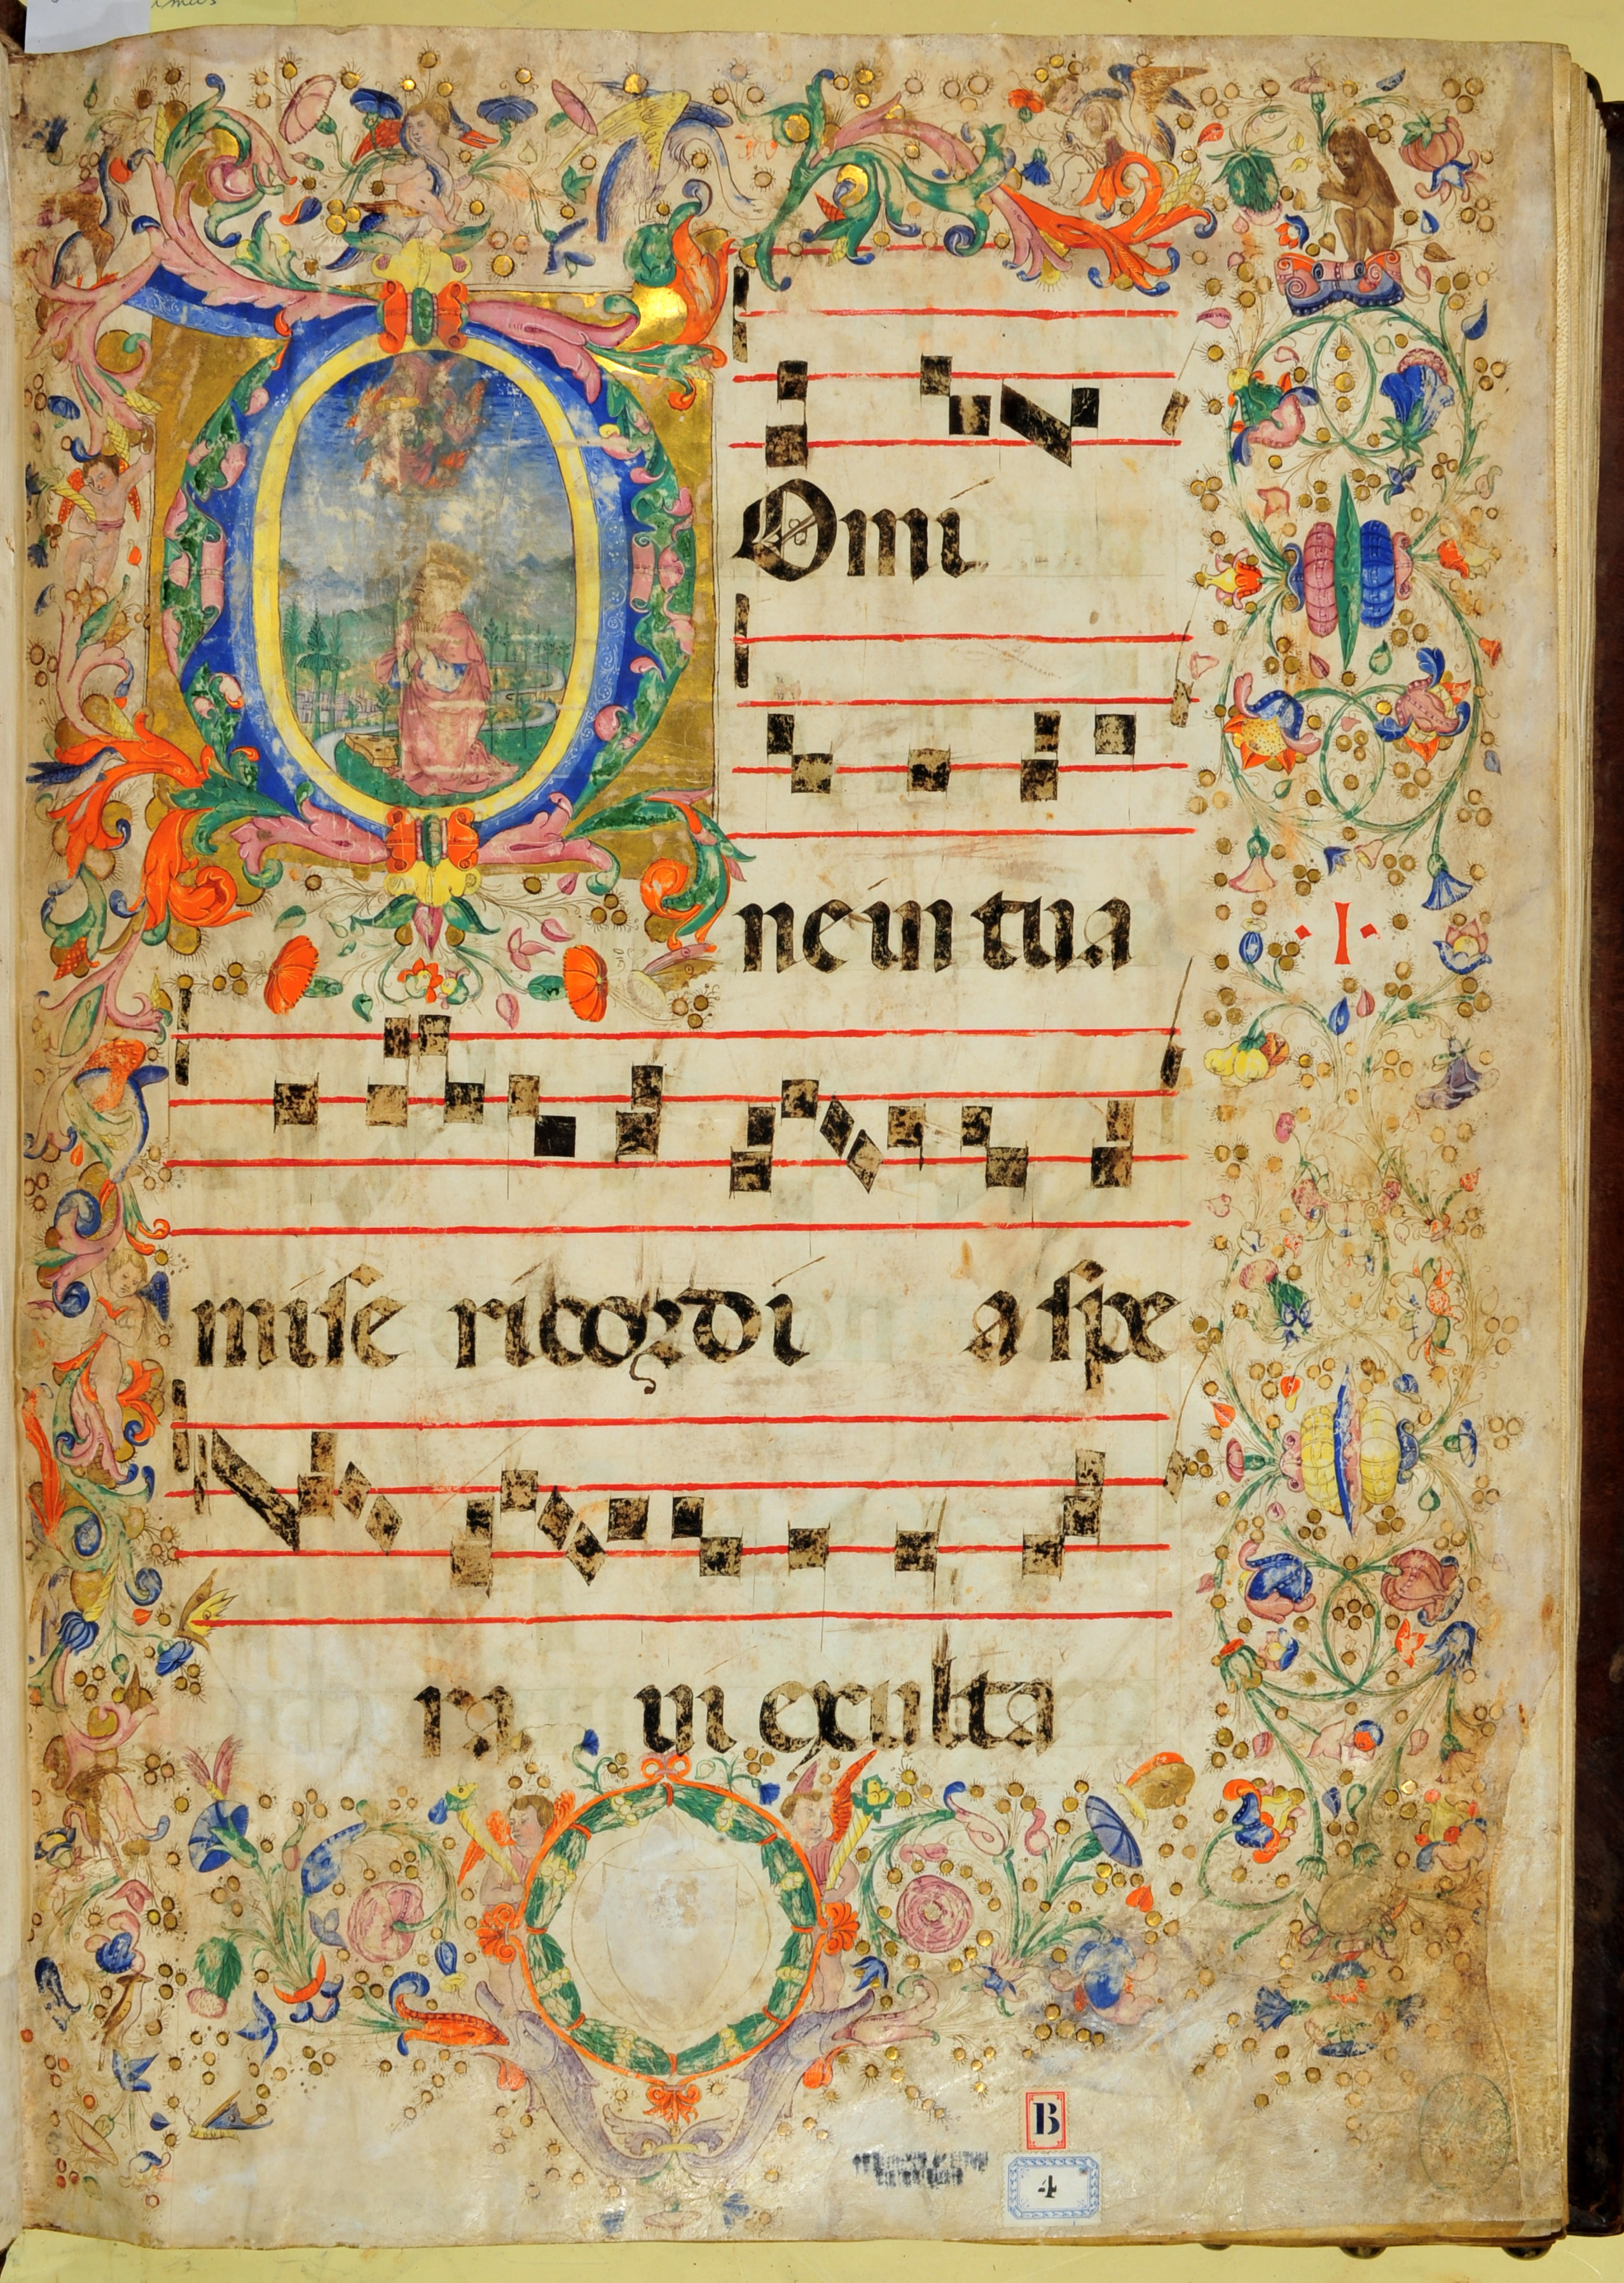 D Omi
ne in tua
mise ricordi a spe
·I·
ra ui exulta
B
4